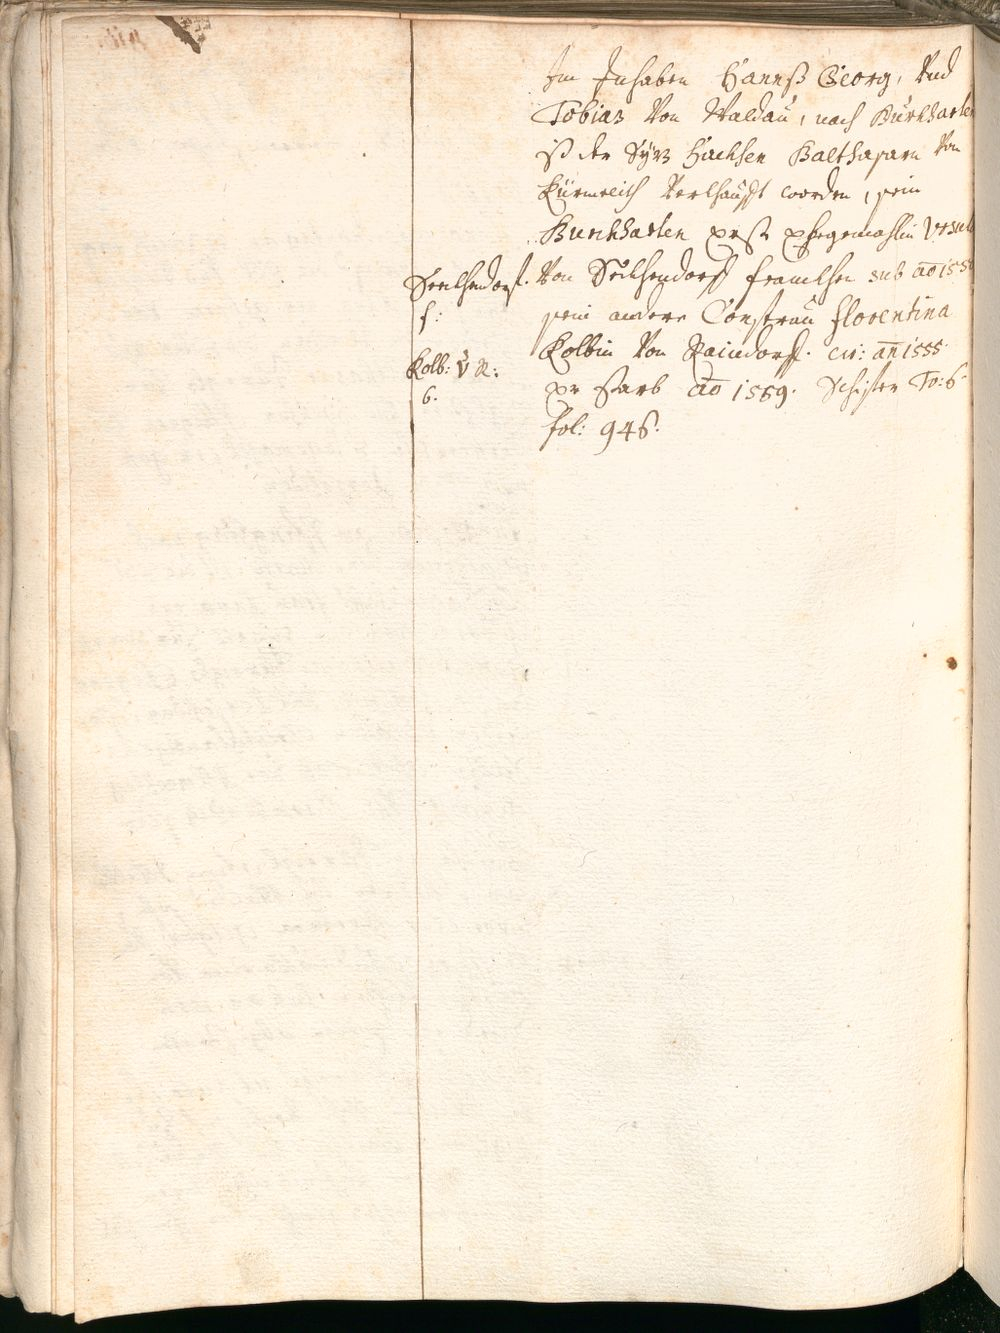 Im Inhaben Hannß Georg, Vnd
Tobias Von Waldau, nach Burkharten
ist der Sÿz Hachsen Balthasarn Von
Kürmreith Verkhaufft worden, sein
Burckharten erste Ehegemahlin Vrsula
Von Seckhendorff franckhen sub ao 155
sein andere Consfrau florentina
Kolbin Von Raindorff. cir: an 1555.
er starb ao 1569. Schifer To: 6.
fol: 946.
Seckhendorf.
f:
Kolb: V R:
6.